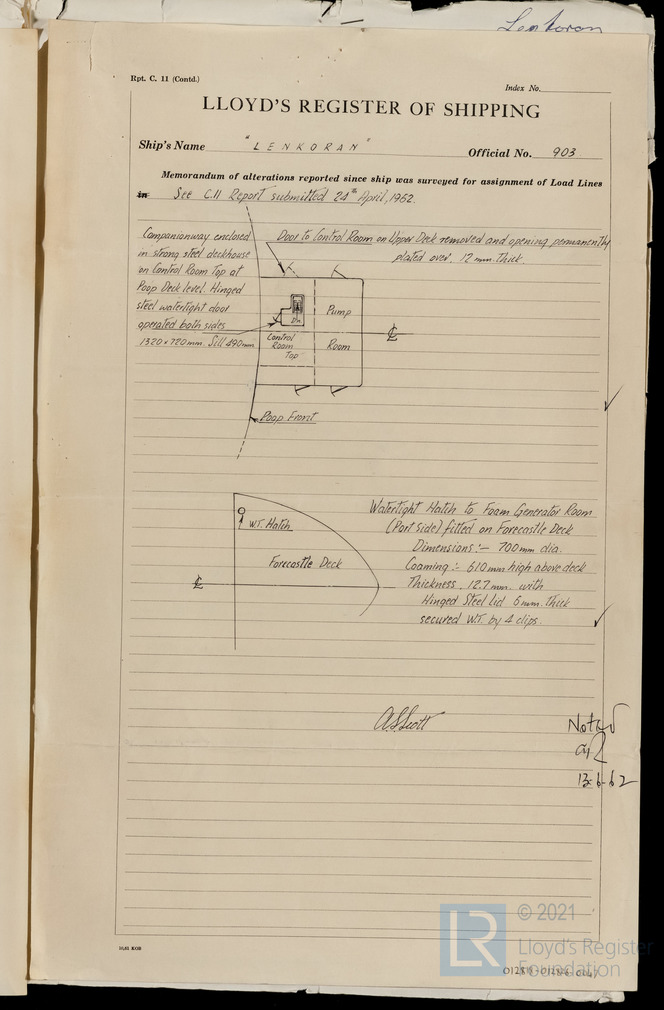 Lenkoran
Rpt. C. 11 (Contd.)
Index No.
LLOYD'S REGISTER OF SHIPPING
Ship's Name "LENKORAN"
Official No. 903
Memorandum of alterations reported since ship was surveyed for assignment of Load Lines
in See C.11 Report submitted 24th April, 1962.
Companionway enclosed
in strong steel deckhouse
on Control Room Top at
Poop Deck level. Hinged
steel watertight door
operated both sides
1320 x 720mm. Sill 490mm
Door to Control Room on Upper Deck removed and opening permanently
plated over. 12 mm. thick.
Pump
Room
Dn
Control
Room
Top
Poop Front
W.T. Hatch
Forecastle Deck
Watertight Hatch to Foam Generator Room
(Port side) fitted on Forecastle Deck
Dimensions:- 700mm dia.
Coaming:- 610mm high above deck
Thickness 12.7mm. with
Hinged Steel Lid 6mm. thick
secured W.T. by 4 clips.
Noted
13-6-62
© 2021
LR
Lloyd's Register
Foundation